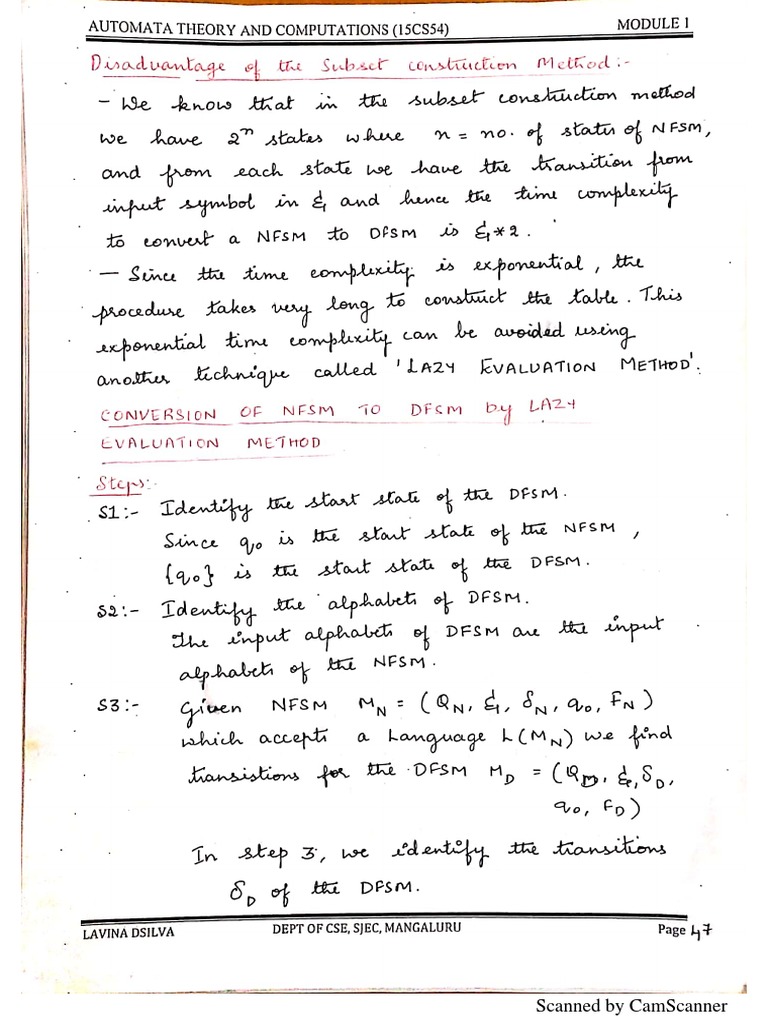 AUTOMATA THEORY AND COMPUTATIONS (15CS54) MODULE 1
Disadvantage of the Subset construction Method:-
- We know that in the subset construction method
we have 2ⁿ states where n = no. of states of NFSM,
and from each state we have the transition from
input symbol in Σ and hence the time complexity
to convert a NFSM to DFSM is Σ*2.
- Since the time complexity is exponential, the
procedure takes very long to construct the table. This
exponential time complexity can be avoided using
another technique called 'LAZY EVALUATION METHOD'.
CONVERSION OF NFSM TO DFSM by LAZY
EVALUATION METHOD
Steps:-
S1:- Identify the start state of the DFSM.
Since q₀ is the start state of the NFSM,
{q₀} is the start state of the DFSM.
S2:- Identify the alphabets of DFSM.
The input alphabets of DFSM are the input
alphabets of the NFSM.
S3:- Given NFSM M_N = (Q_N, Σ, δ_N, q₀, F_N)
which accepts a Language L(M_N) we find
transistions for the DFSM M_D = (Q_D, Σ, δ_D,
q₀, F_D)
In step 3, we identify the transitions
δ_D of the DFSM.
LAVINA DSILVA DEPT OF CSE, SJEC, MANGALURU Page 47
Scanned by CamScanner